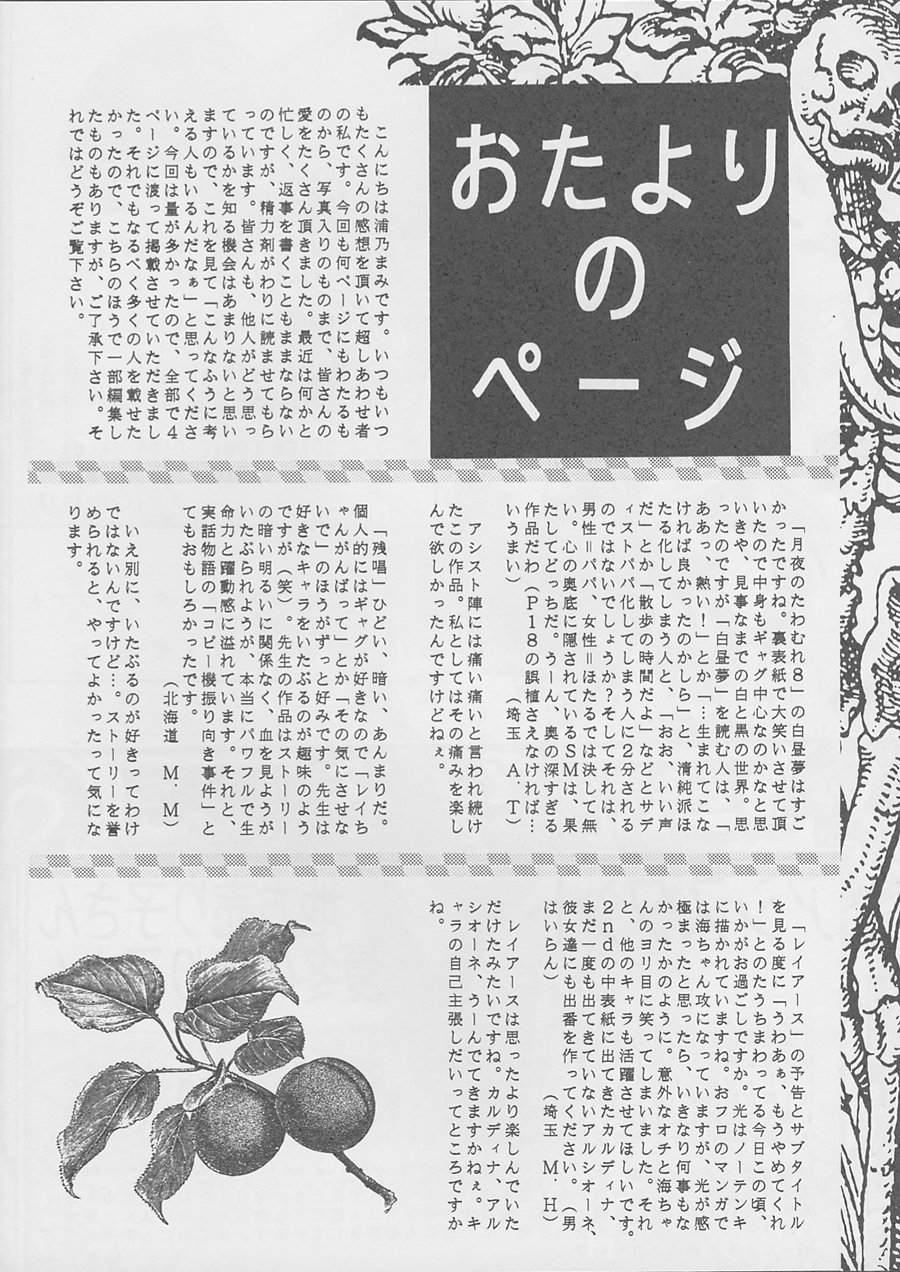 おたより
の
ページ
こんにちは浦乃まみです。いつもいつ
もたくさんの感想を頂いて超しあわせ者
の私です。今回も何ページにもわたるも
のから、写真入りのものまで、皆さんの
愛をたくさん頂きました。最近は何かと
忙しく、返事を書くこともままならない
のですが、精力剤がわりに読ませてもら
っています。皆さんも、他人がどう思っ
ているかを知る機会はあまりないと思い
ますので、これを見て「こんなふうに考
える人もいるんだなぁ」と思ってくださ
い。今回は量が多かったので、全部で4
ページに渡って掲載させていただきまし
た。それでもなるべく多くの人を載せた
かったので、こちらのほうで一部編集し
たものもありますが、ご了承下さい。そ
れではどうぞご覧下さい。
「月夜のたわむれ8」の白昼夢はすご
かったですね。裏表紙で大笑いさせて頂
いたので中身もギャグ中心なのかなと思
いきや、見事なまでの白と黒の世界。思
ったのですが「白昼夢」を読む人は、「
ああっ、熱い!」とか「…生まれてこな
ければ良かったのかしら」と、清純派ほ
たる化してしまう人と、「おお、いい声
だ」とか「散歩の時間だよ」などとサデ
ィストパパ化してしまう人に2分される
のではないでしょうか?そしてそれは、
男性=パパ、女性=ほたるでは決して無
い。心の奥底に隠されているSMは、果
たしてどっちだ。うーん、奥の深すぎる
作品だわ(P18の誤植さえなければ…
いうまい) (埼玉 A.T)
アシスト陣には痛い痛いと言われ続け
たこの作品。私としてはその痛みを楽し
んで欲しかったんですけどねぇ。
「残唱」ひどい、暗い、あんまりだ。
個人的にはギャグが好きなので「レイち
ゃんがんばって」とか「その気にさせな
いで」のほうがずっと好みです。先生は
好きなキャラをいたぶるのが趣味のよう
ですが(笑)。先生の作品はストーリー
の暗い明るいに関係なく、血を見ようが
いたぶられようが、本当にパワフルで生
命力と躍動感に溢れています。それと、
実話物語の「コピー機振り向き事件」と
てもおもしろかったです。
(北海道 M.M)
いえ別に、いたぶるのが好きってわけ
ではないんですけど…。ストーリーを誉
められると、やってよかったって気にな
ります。
「レイアース」の予告とサブタイトル
を見る度に「うわあぁ、もうやめてくれ
!」とのたうちまわってる今日この頃、
いかがお過ごしですか。光はノーテンキ
に描かれていますね。おフロのマンガで
は海ちゃん攻になっていますが、光が感
極まったと思ったら、いきなり何事もな
かったかのように。意外なオチと海ちゃ
んのヨリ目に笑ってしまいました。それ
と、他のキャラも活躍させてほしいです。
2ndの中表紙に出てきたカルディナ、
まだ一度も出てきていないアルシオーネ、
彼女達にも出番を作ってください。(男
はいらん) (埼玉 M.H)
レイアースは思ったより楽しんでいた
だけたみたいですね。カルディナ、アル
シオーネ、うーんでてきますかねぇ。キ
ャラの自己主張しだいってところですか
ね。